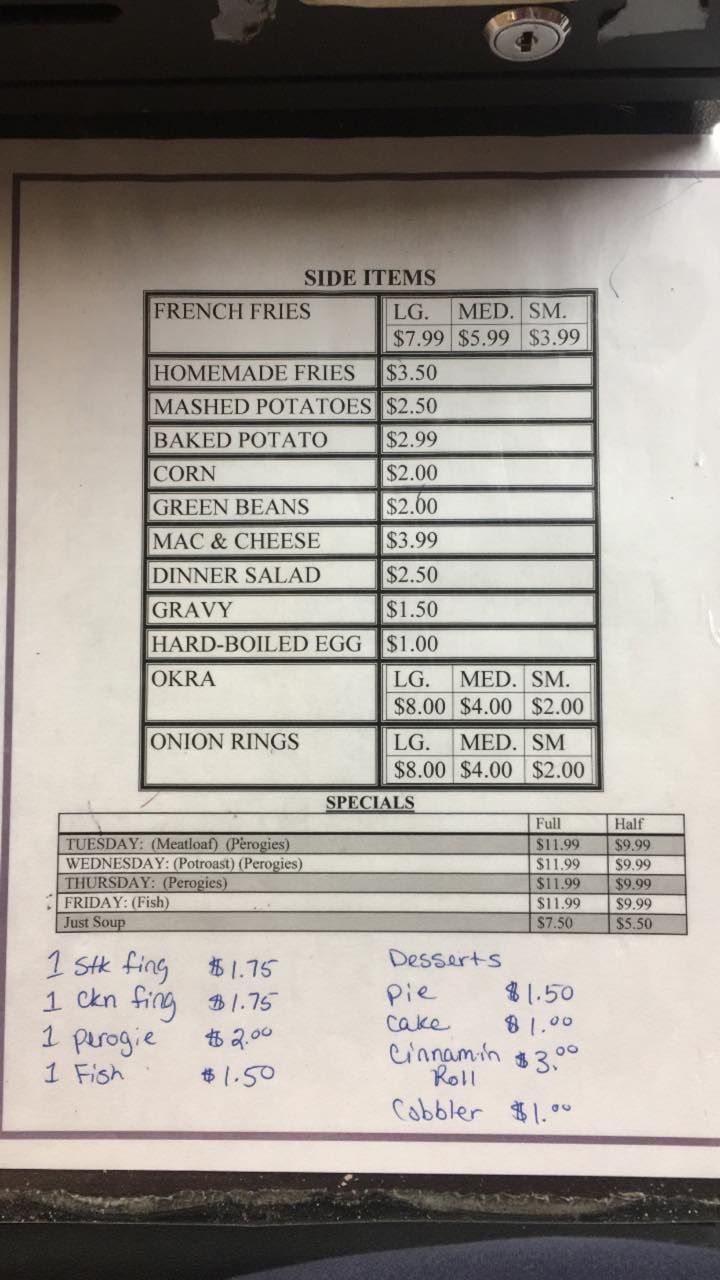 SIDE ITEMS
FRENCH FRIES LG. MED. SM.
$7.99 $5.99 $3.99
HOMEMADE FRIES $3.50
MASHED POTATOES $2.50
BAKED POTATO $2.99
CORN $2.00
GREEN BEANS $2.00
MAC & CHEESE $3.99
DINNER SALAD $2.50
GRAVY $1.50
HARD-BOILED EGG $1.00
OKRA LG. MED. SM.
$8.00 $4.00 $2.00
ONION RINGS LG. MED. SM
$8.00 $4.00 $2.00
SPECIALS
Full Half
TUESDAY: (Meatloaf) (Perogies) $11.99 $9.99
WEDNESDAY: (Potroast) (Perogies) $11.99 $9.99
THURSDAY: (Perogies) $11.99 $9.99
FRIDAY: (Fish) $11.99 $9.99
Just Soup $7.50 $5.50
1 Stk fing $1.75
1 Ckn fing $1.75
1 perogie $2.00
1 Fish $1.50
Desserts
pie $1.50
Cake $1.00
Cinnamin $3.00
Roll
Cobbler $1.00